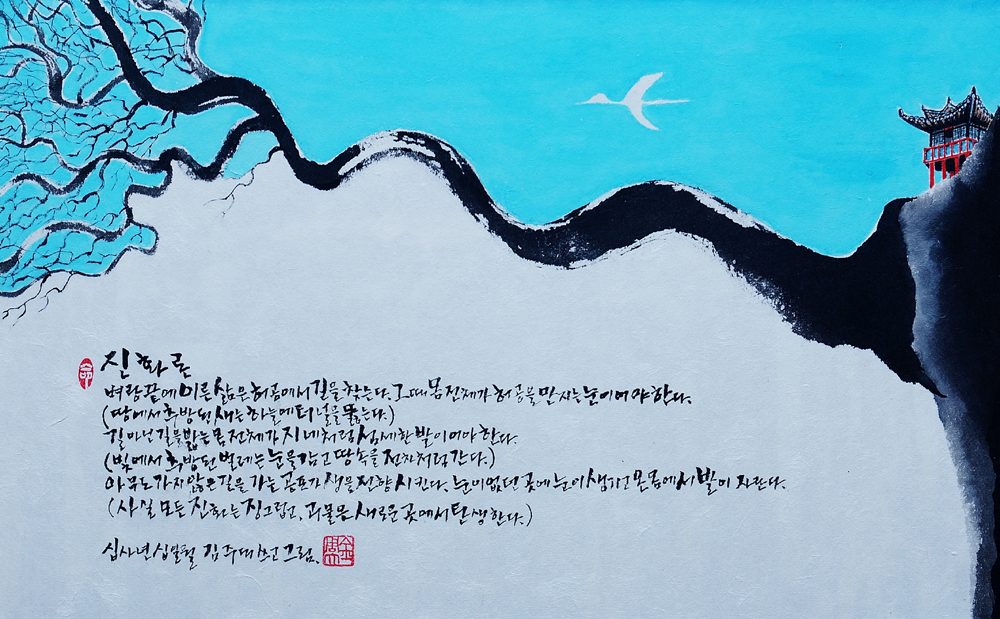 진화론
벼랑 끝에 이른 삶은 허공에서 길을 찾는다. 그때 몸 전체가 허공을 만지는 눈이어야 한다.
(땅에서 추방된 새는 하늘에 터널을 뚫는다.)
길 아닌 길을 밟는 몸 전체가 지네처럼 섬세한 발이어야 한다.
(빛에서 추방된 벌레는 눈을 감고 땅 속을 전차처럼 간다.)
아무도 가지 않은 길을 가는 공포가 생을 전향시킨다. 눈이 없던 곳에 눈이 생기고 온몸에서 발이 자란다.
(사실 모든 진화는 징그럽고, 괴물은 새로운 곳에서 탄생한다.)
십사년 십일월 김주대 쓰고 그림.